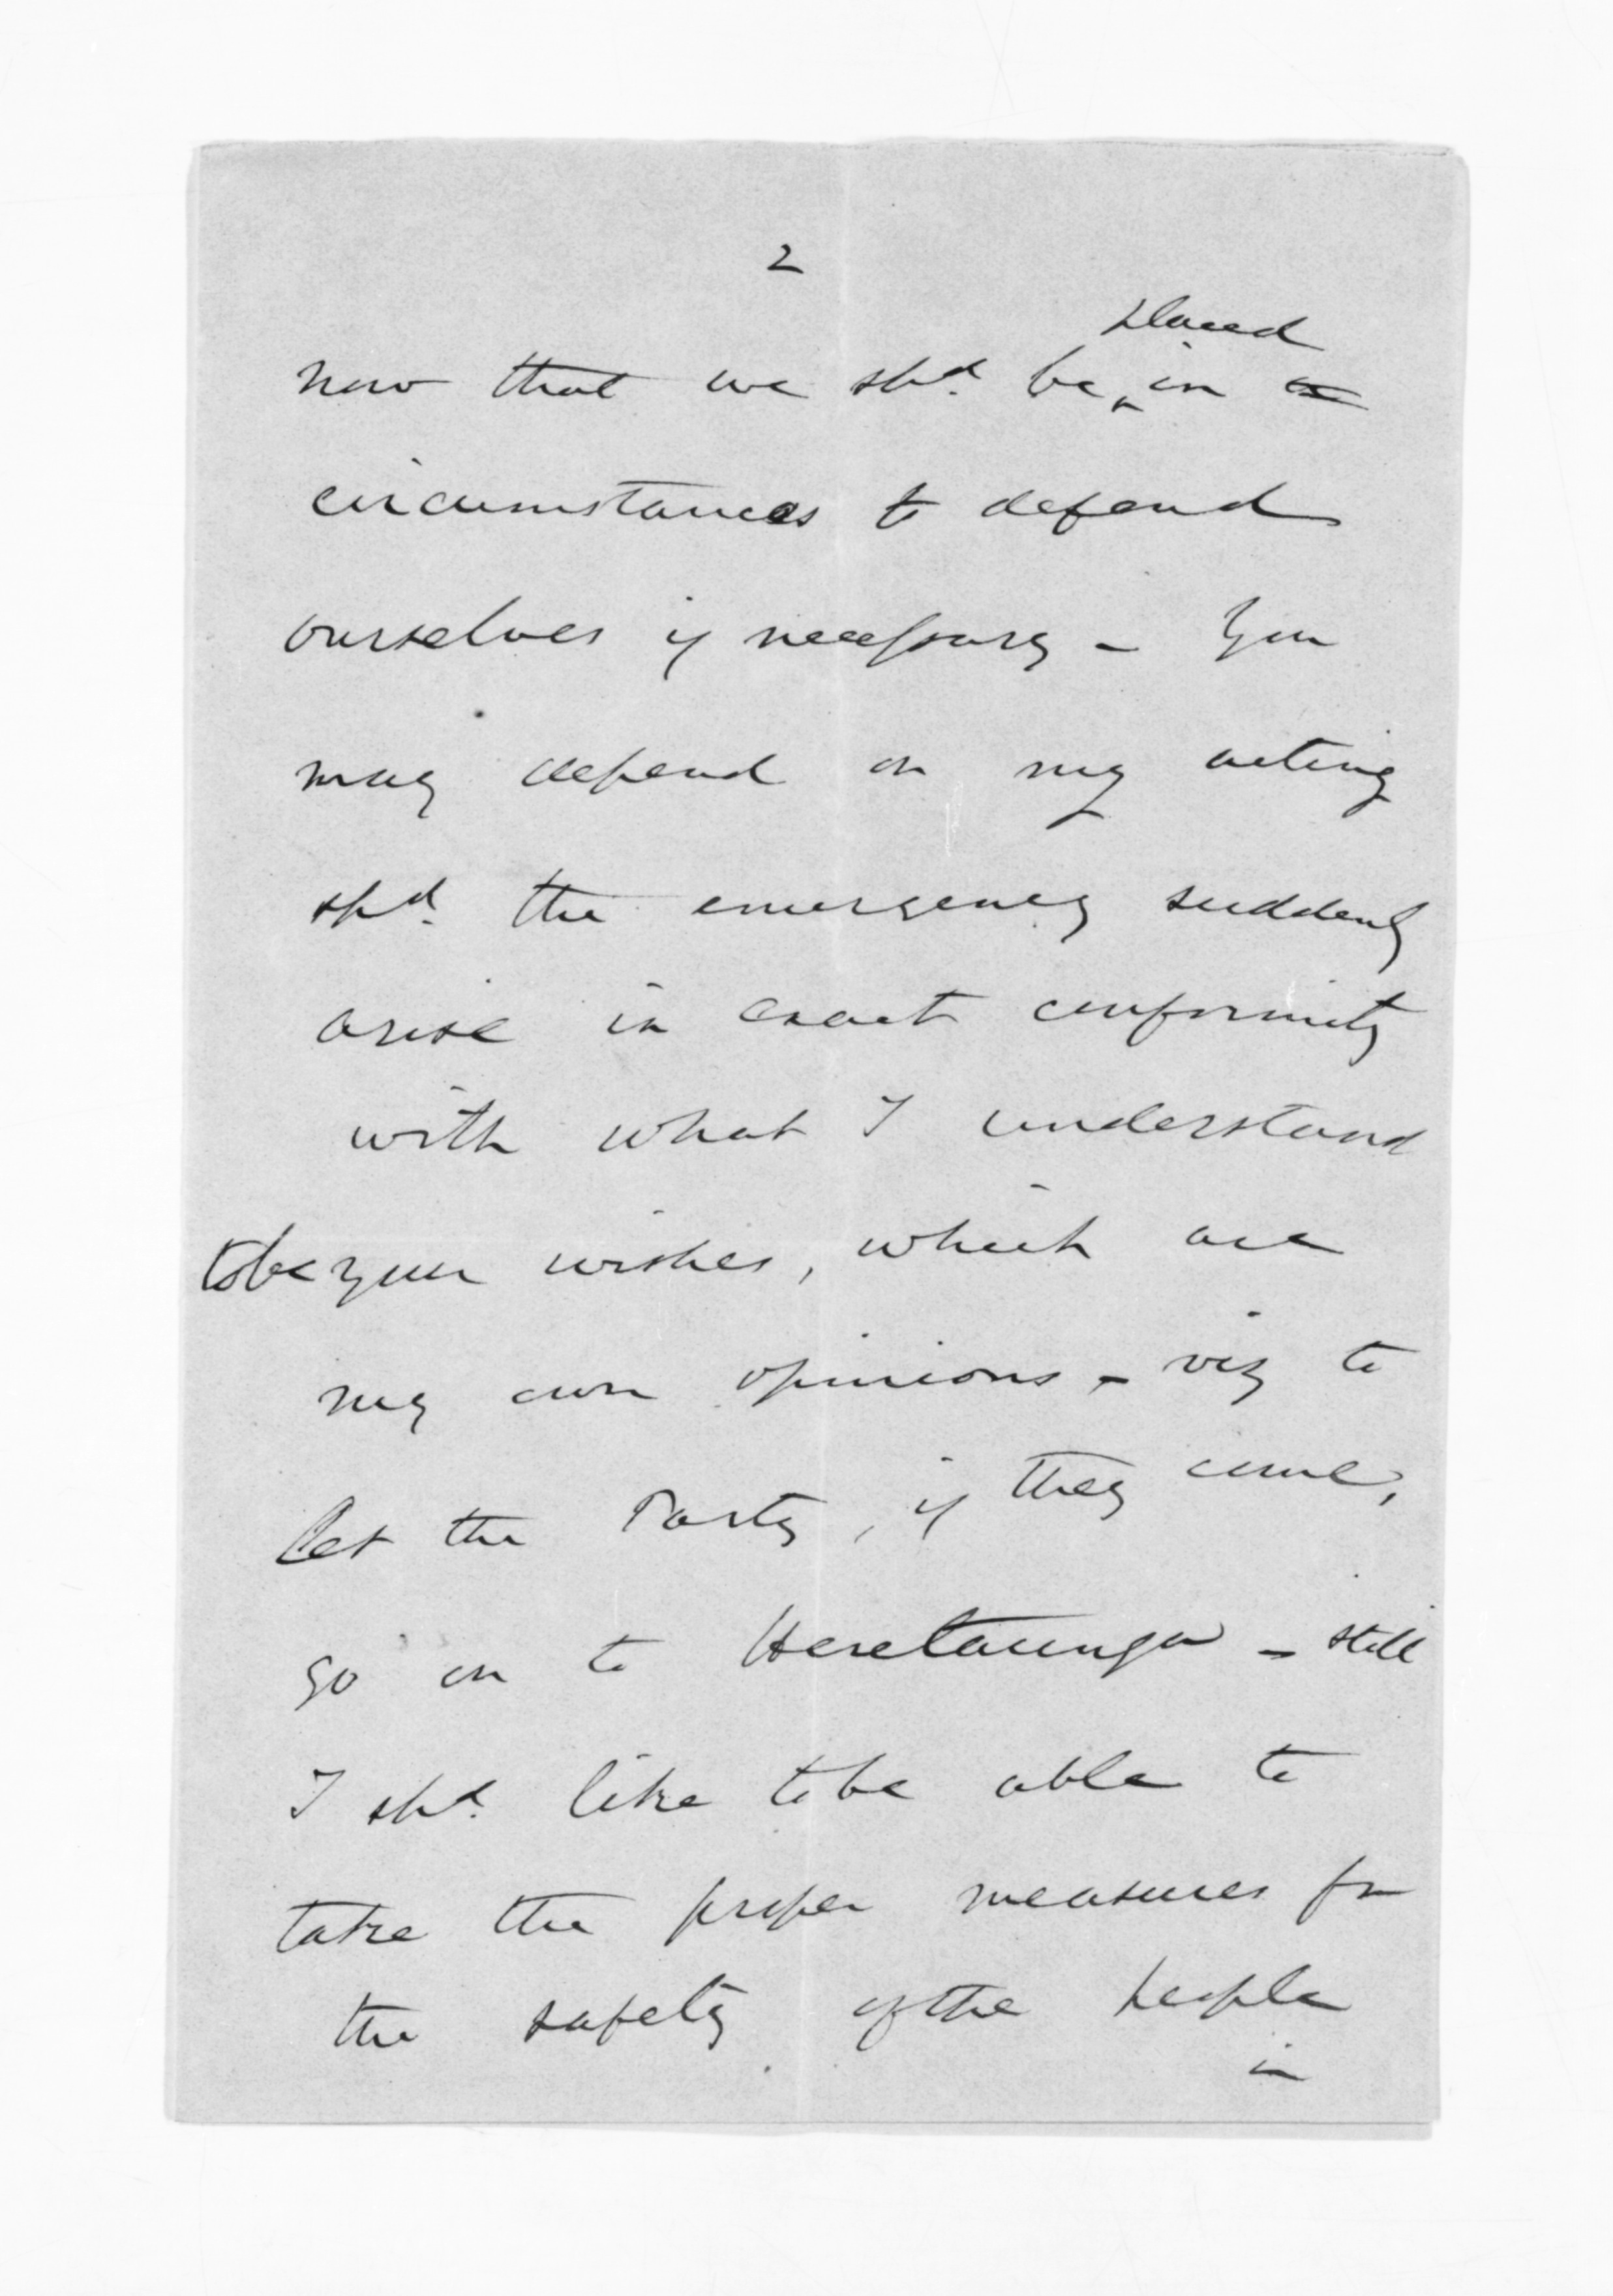 2
placed
now that we shd. be in a
circumstances to defend
ourselves if necessary - You
may depend on my acting
shd. the emergency suddenly
arise in exact conformity
with what I understand
to be your wishes, which are
my own opinions - viz to
let the Party, if they come,
go on to Heretaunga - still
I shd. like to be able to
take the proper measures for
the safety of the people
in